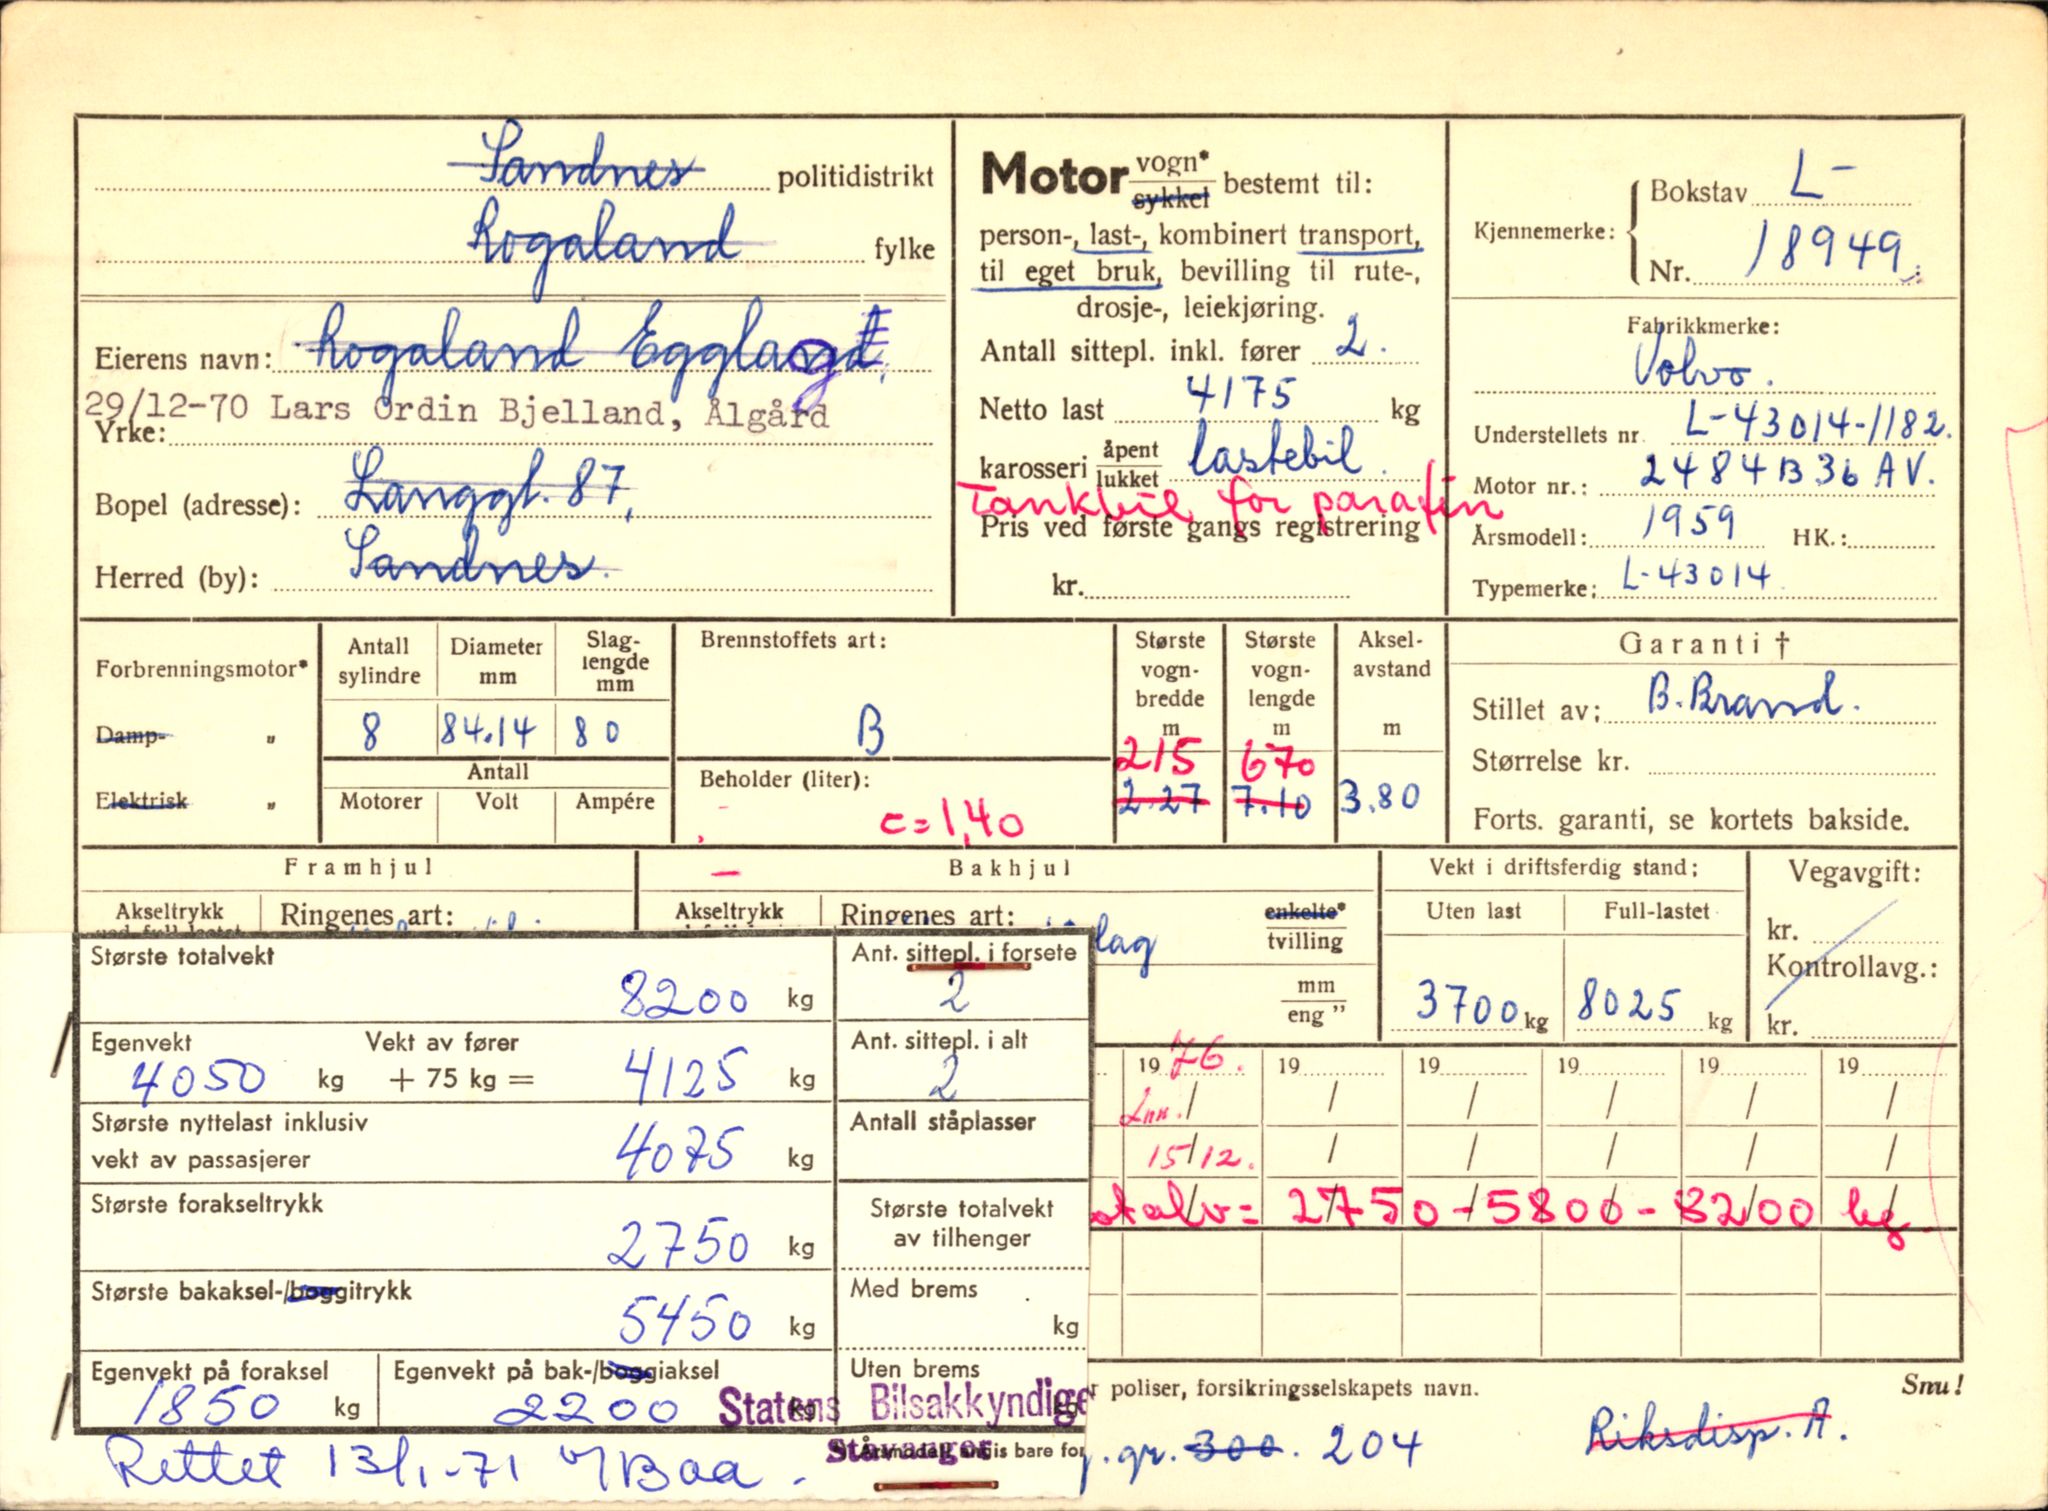 Sandnes politidistrikt
Rogaland fylke
Eierens navn: Rogaland Egglag
29/12-70 Lars Ordin Bjelland, Ålgård
Yrke:
Bopel (adresse): Langgt. 87,
Herred (by): Sandnes.
Motor vogn* sykkel bestemt til:
person-, last-, kombinert transport,
til eget bruk, bevilling til rute-,
drosje-, leiekjøring.
Antall sittepl. inkl. fører 2.
Netto last 4175 kg
karosseri åpent lukket lastebil.
Tankbil for parafin
Pris ved første gangs registrering
kr.
Kjennemerke: Bokstav L-
Nr. 18949
Fabrikkmerke:
Volvo.
Understellets nr. L-43014-1182.
Motor nr.: 2484B36AV.
Årsmodell: 1959 HK.:
Typemerke: L-43014
Forbrenningsmotor*
Damp- „
Elektrisk „
Antall sylindre
8
Diameter mm
84.14
Slaglengde mm
80
Antall
Motorer Volt Ampére
Brennstoffets art:
B
Beholder (liter):
c=1,40
Største vogn-bredde m
215
2.27
Største vogn-lengde m
670
7.10
Aksel-avstand m
3.80
Garanti †
Stillet av: B. Brand.
Størrelse kr.
Forts. garanti, se kortets bakside.
Framhjul
Akseltrykk
Ringenes art:
Bakhjul
Akseltrykk
Ringenes art:
enkelte*
tvilling
lag
mm
eng "
Vekt i driftsferdig stand:
Uten last Full-lastet
3700 kg 8025 kg
Vegavgift:
kr.
Kontrollavg.:
kr.
19 76. 19 19 19 19 19
Inn. / / / / / /
15/12. / / / / /
totalv = 2750 - 5800 - 8200 kg
Største totalvekt
8200 kg
Egenvekt Vekt av fører
4050 kg + 75 kg = 4125 kg
Største nyttelast inklusiv
vekt av passasjerer 4075 kg
Største forakseltrykk
2750 kg
Største bakaksel-/boggitrykk
5450 kg
Egenvekt på foraksel
1850 kg
Egenvekt på bak-/boggiaksel
2200 kg
Ant. sittepl. i forsete
2
Ant. sittepl. i alt
2
Antall ståplasser
Største totalvekt
av tilhenger
Med brems
kg
Uten brems
kg
Statens Bilsakkyndige
Stavanger
Rettet 13/1-71
is bare for
r poliser, forsikringsselskapets navn.
Snu!
gr. 300. 204
Riksdisp. A.